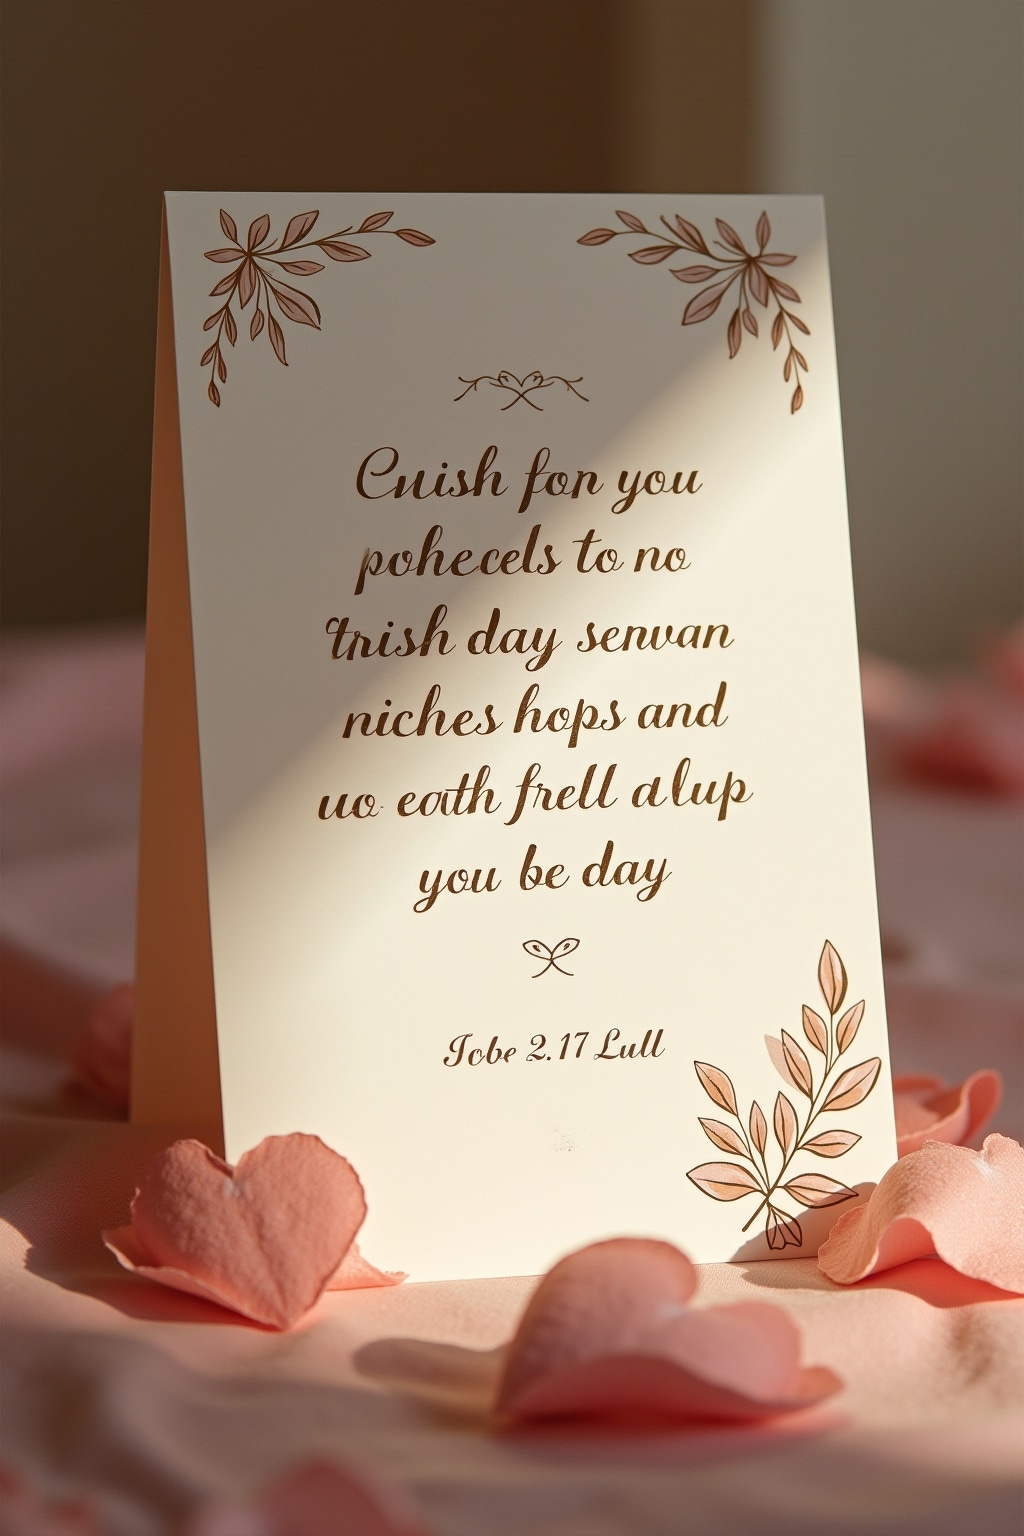 Cuish for you
pohecels to no
trish day senvan
niches hops and
uo eath frell alup
you be day
Jobe 2.17 Lull